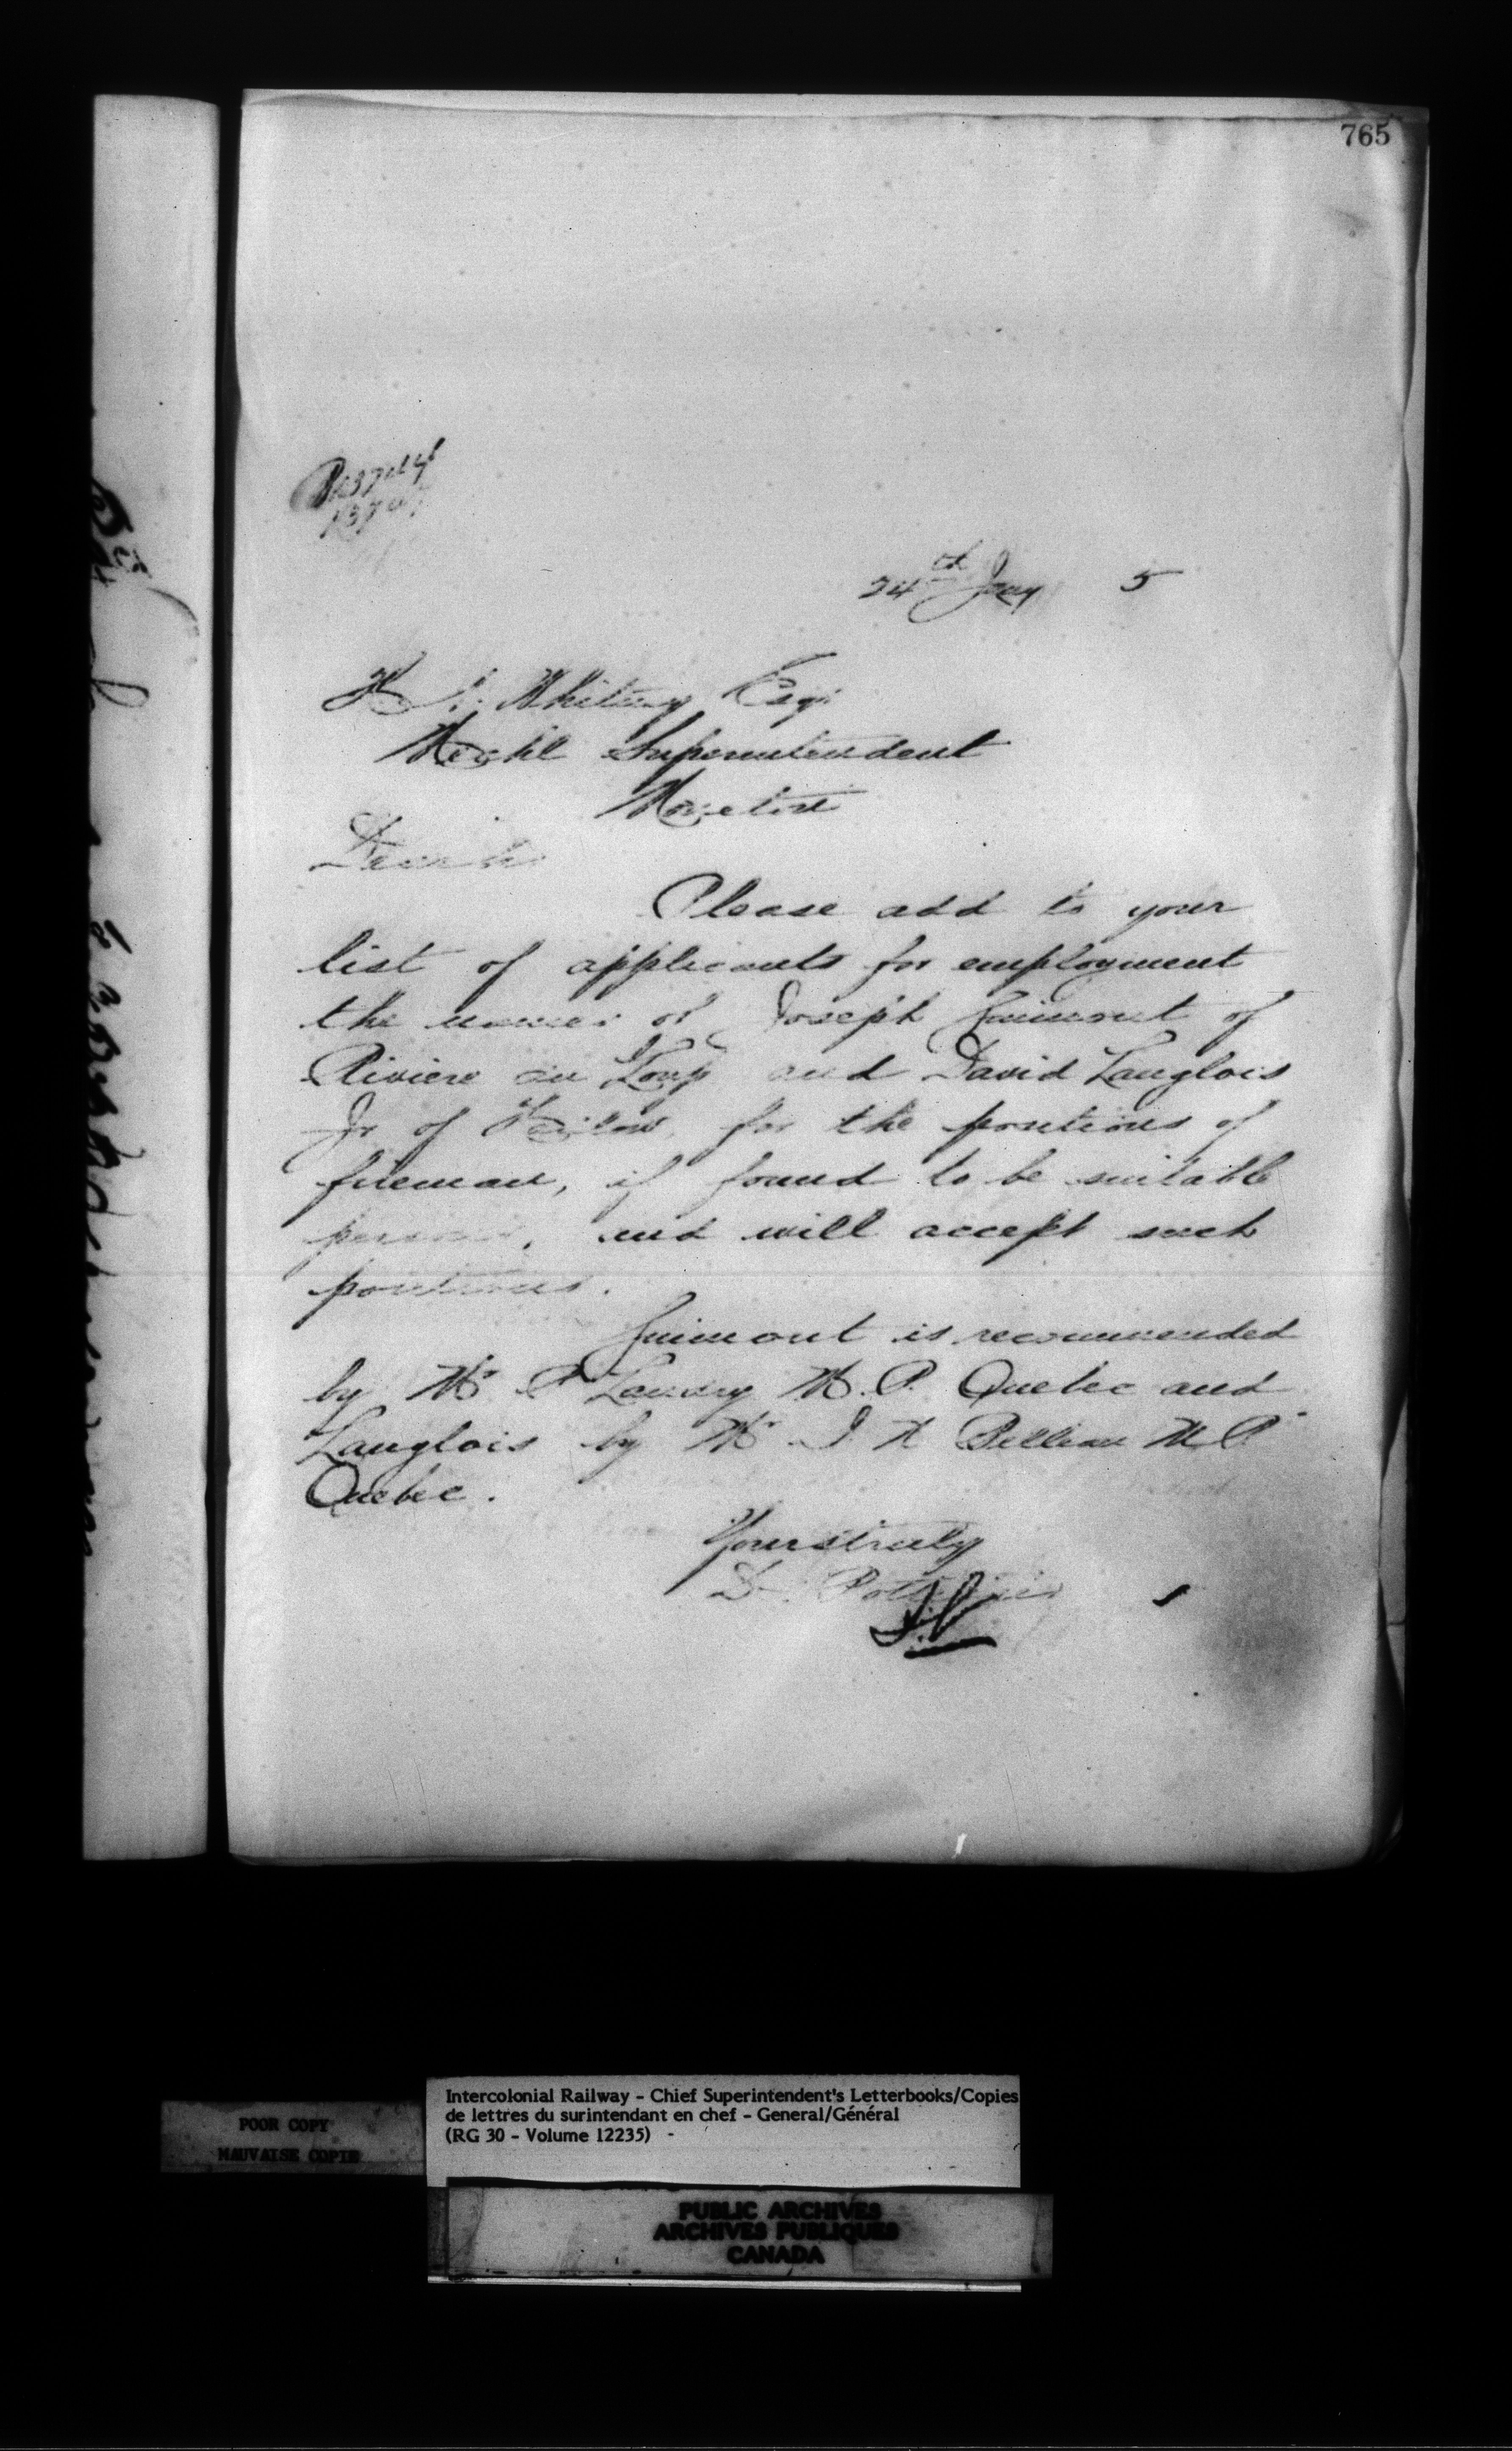 765
24th Jany 5
H. A. Whitney Esqr
Mechl Superintendent
Moncton
Dear Sir
Please add to your
list of applicants for employment
the names of Joseph Guimont of
Riviere du Loup and David Langlois
Jr of for the positions of
fireman, if found to be suitable
persons, and will accept such
positions.
Guimont is recommended
by Mr P Landry M.P. Quebec and
Langlois by Mr Belleau M P
Quebec.
Yours truly
D. Pottinger
POOR COPY
MAUVAISE COPIE
Intercolonial Railway - Chief Superintendent's Letterbooks/Copies
de lettres du surintendant en chef - General/Général
(RG 30 - Volume 12235) -
PUBLIC ARCHIVES
ARCHIVES PUBLIQUES
CANADA